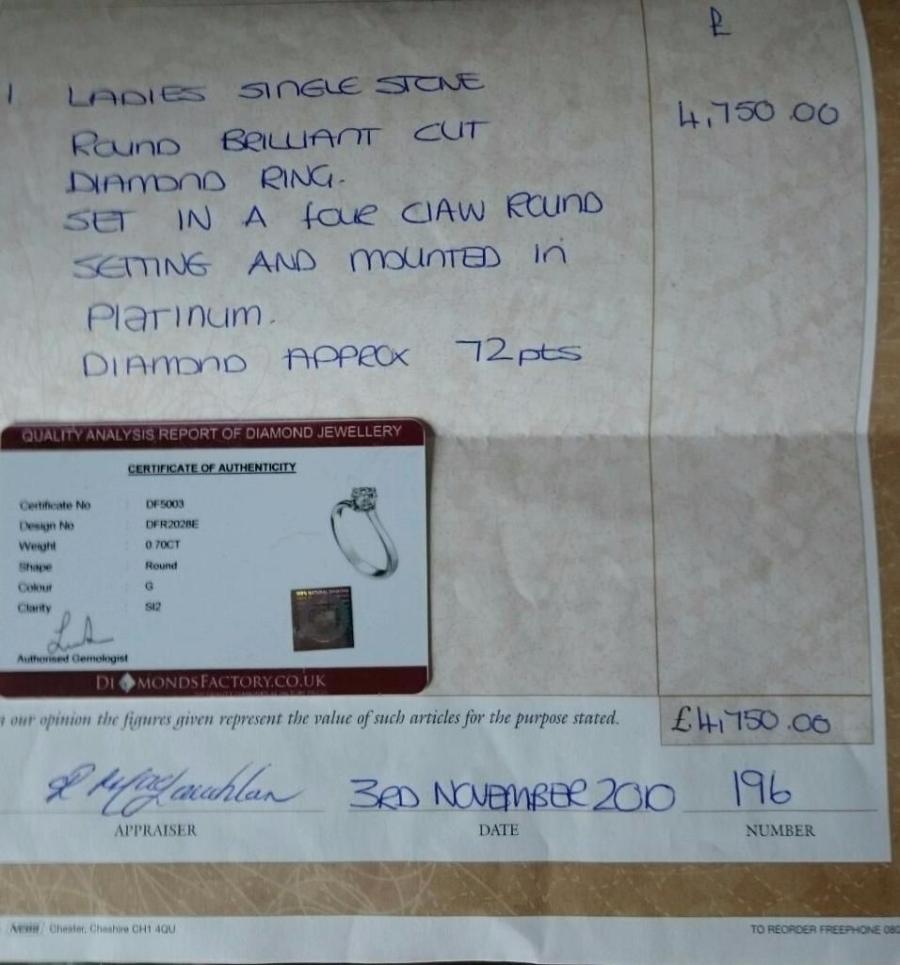 £
1 LADIES SINGLE STONE 4,750.00
ROUND BRILLIANT CUT
DIAMOND RING.
SET IN A four CLAW ROUND
SETTING AND MOUNTED IN
PLATINUM.
DIAMOND APPROX 72pts
QUALITY ANALYSIS REPORT OF DIAMOND JEWELLERY
CERTIFICATE OF AUTHENTICITY
Certificate No : DF5003
Design No : DFR2028E
Weight : 0.70CT
Shape : Round
Colour : G
Clarity : SI2
Authorised Gemologist
DIAMONDSFACTORY.CO.UK
n our opinion the figures given represent the value of such articles for the purpose stated. £4,750.00
3RD NOVEMBER 2010 196
APPRAISER DATE NUMBER
Chester, Cheshire CH1 4QU TO REORDER FREEPHONE 080